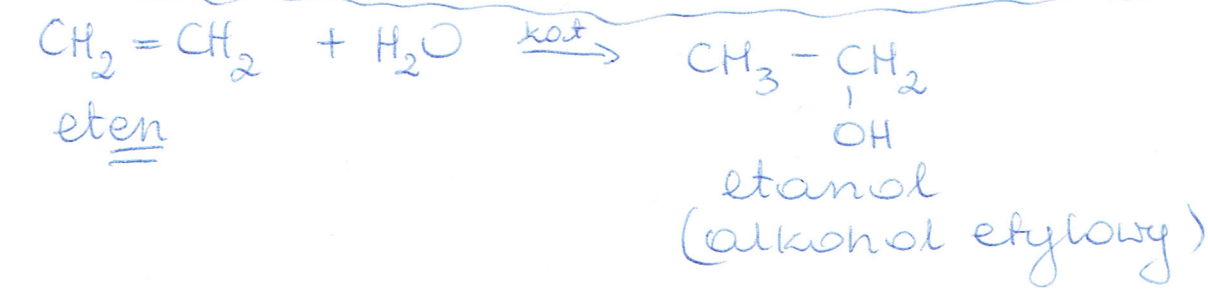 CH₂ = CH₂ + H₂O kat→ CH₃ – CH₂
OH
eten
etanol
(alkohol etylowy)